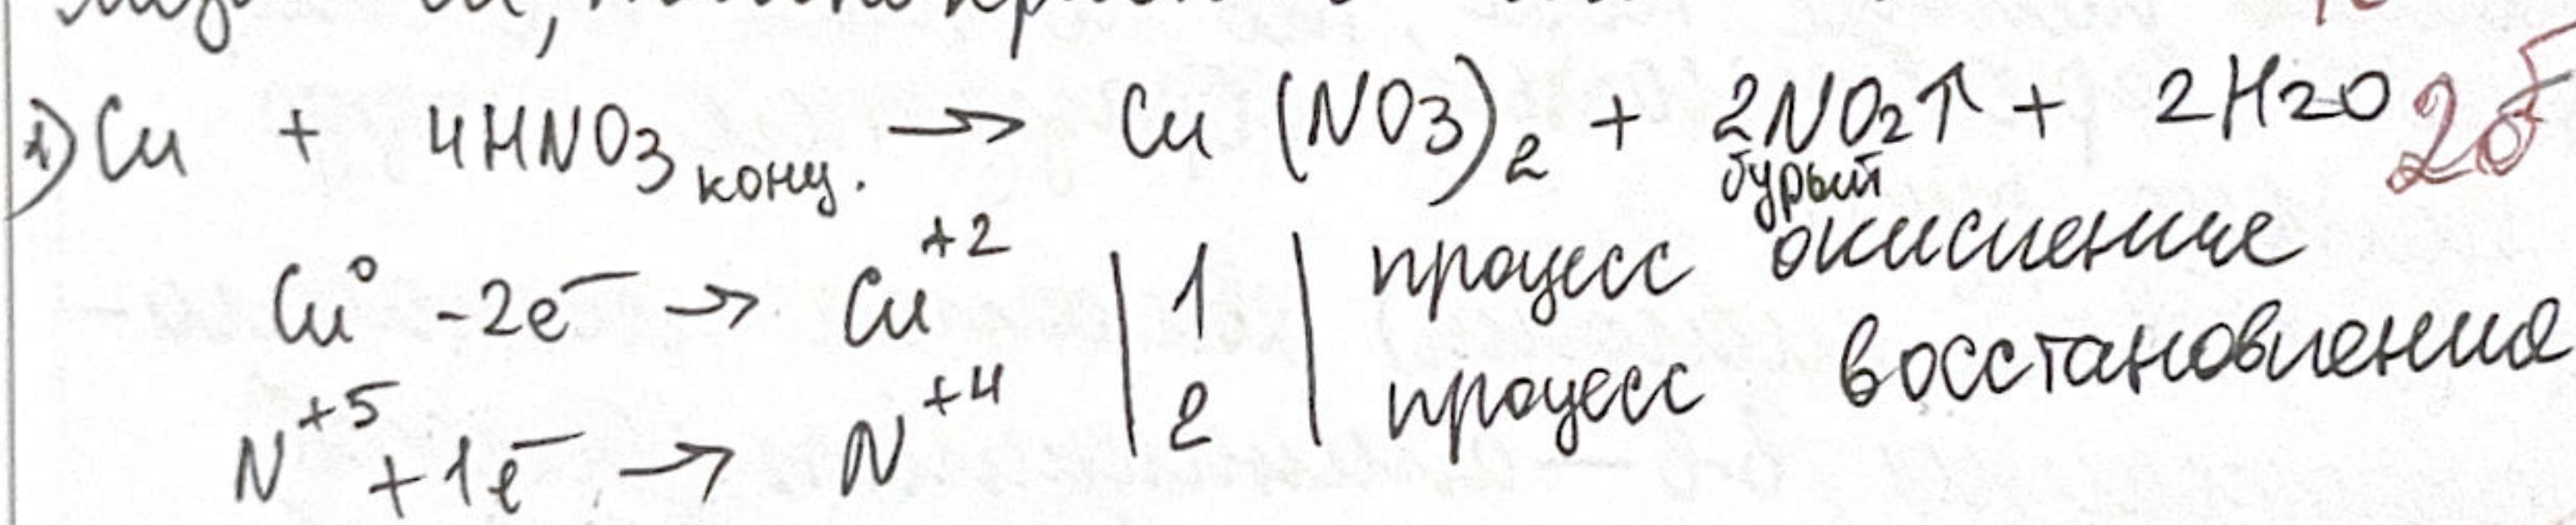 1) Cu + 4HNO3 конц. → Cu (NO3)2 + 2NO2↑ + 2H2O 2б
бурый
Cu⁰ -2e⁻ → Cu⁺² | 1 | процесс окисление
N⁺⁵ +1e⁻ → N⁺⁴ | 2 | процесс восстановления